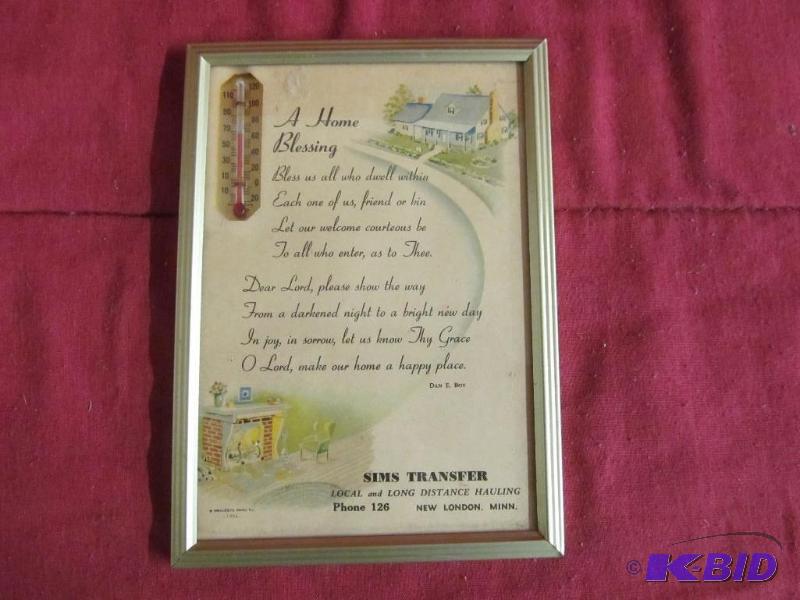 A Home
Blessing
Bless us all who dwell within
Each one of us, friend or kin
Let our welcome courteous be
To all who enter, as to Thee.
Dear Lord, please show the way
From a darkened night to a bright new day
In joy, in sorrow, let us know Thy Grace
O Lord, make our home a happy place.
DAN E. BOY
SIMS TRANSFER
LOCAL and LONG DISTANCE HAULING
Phone 126 NEW LONDON, MINN.
110 120
90 100
70 80
50 60
30 40
10 20
10 0
20
© K-BID